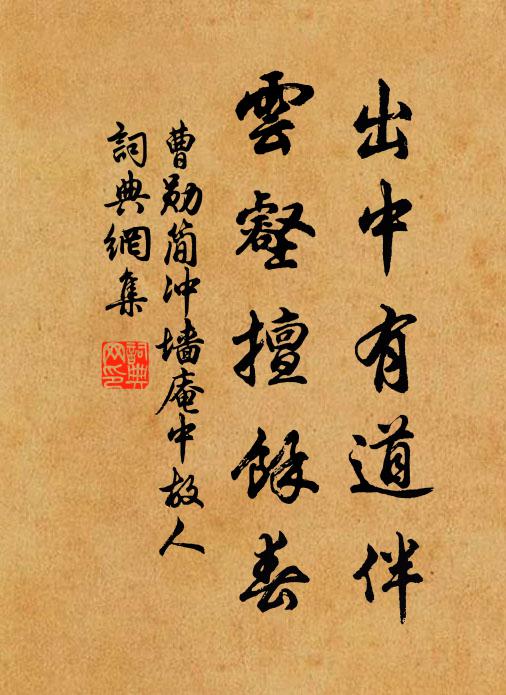 出中有道伴
雲壑擅餘春
曹勛简冲墙庵中故人
詞典網集
詞典網印